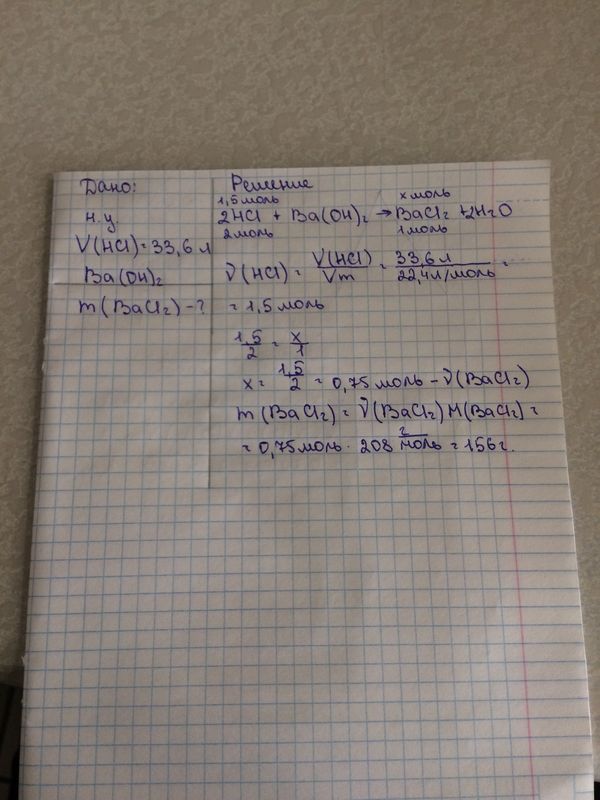 Дано:
н.у.
V(HCl)=33,6 л
Ba(OH)₂
m(BaCl₂)-?
Решение
1,5 моль x моль
2HCl + Ba(OH)₂ → BaCl₂ + 2H₂O
2 моль 1 моль
ν(HCl) = V(HCl)/Vm = 33,6 л/22,4 л/моль =
= 1,5 моль
1,5/2 = x/1
x = 1,5/2 = 0,75 моль - ν(BaCl₂)
m(BaCl₂) = ν(BaCl₂) M(BaCl₂) =
= 0,75 моль · 208 г/моль = 156 г.